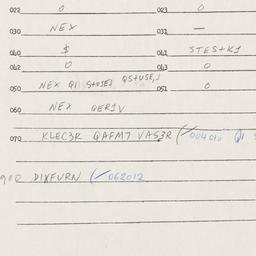 022 0 023 0
030 NEX 032 —
040 $ 041 STES+K1
042 0 043 0
050 NEX Q1 051 0
060 NEX QER1V
070 KLEC3R QAFM7 VAS3R (/004010
DIXFURN (/062012